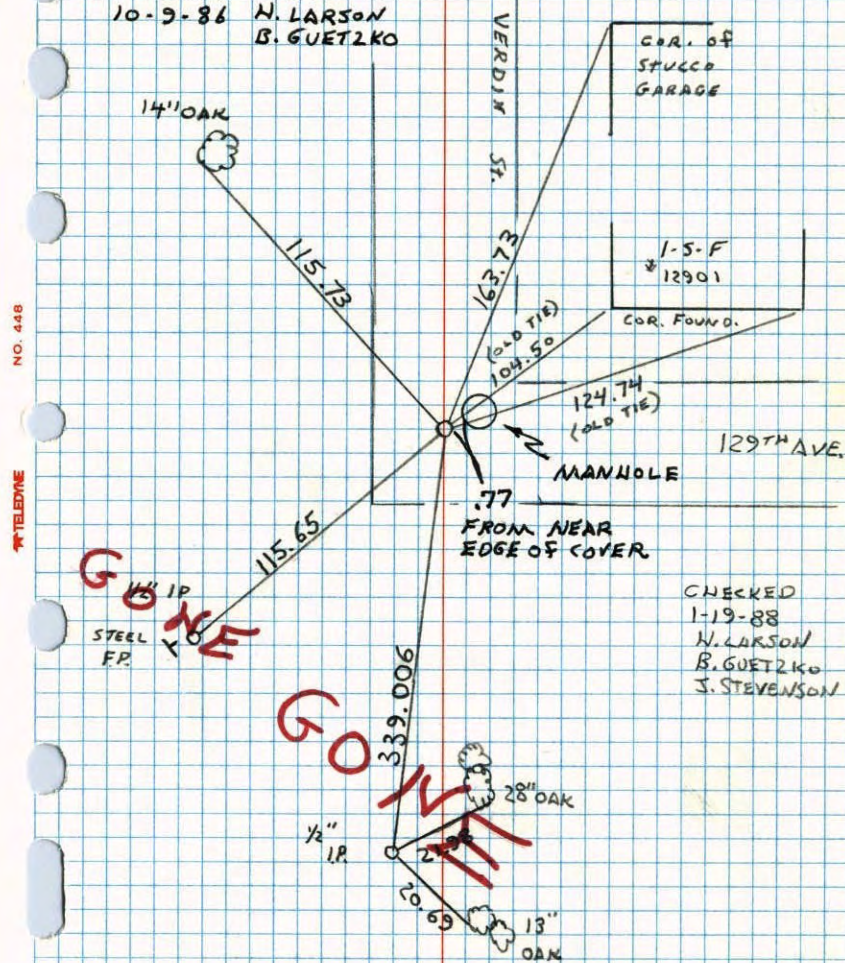 10-9-86 H. LARSON
B. GUETZKO
VERDIN ST.
COR. OF
STUCCO
GARAGE
14" OAK
115.73
163.73
1-S-F
# 12901
COR. FOUND.
(OLD TIE)
104.50
124.74
(OLD TIE)
129TH AVE.
MANHOLE
.77
FROM NEAR
EDGE OF COVER
NO. 448
TELEDYNE
115.65
GONE
1/2" IP
STEEL
F.P.
CHECKED
1-19-88
H. LARSON
B. GUETZKO
J. STEVENSON
339.006
GONE
28" OAK
1/2"
I.P.
20.69
13"
OAK